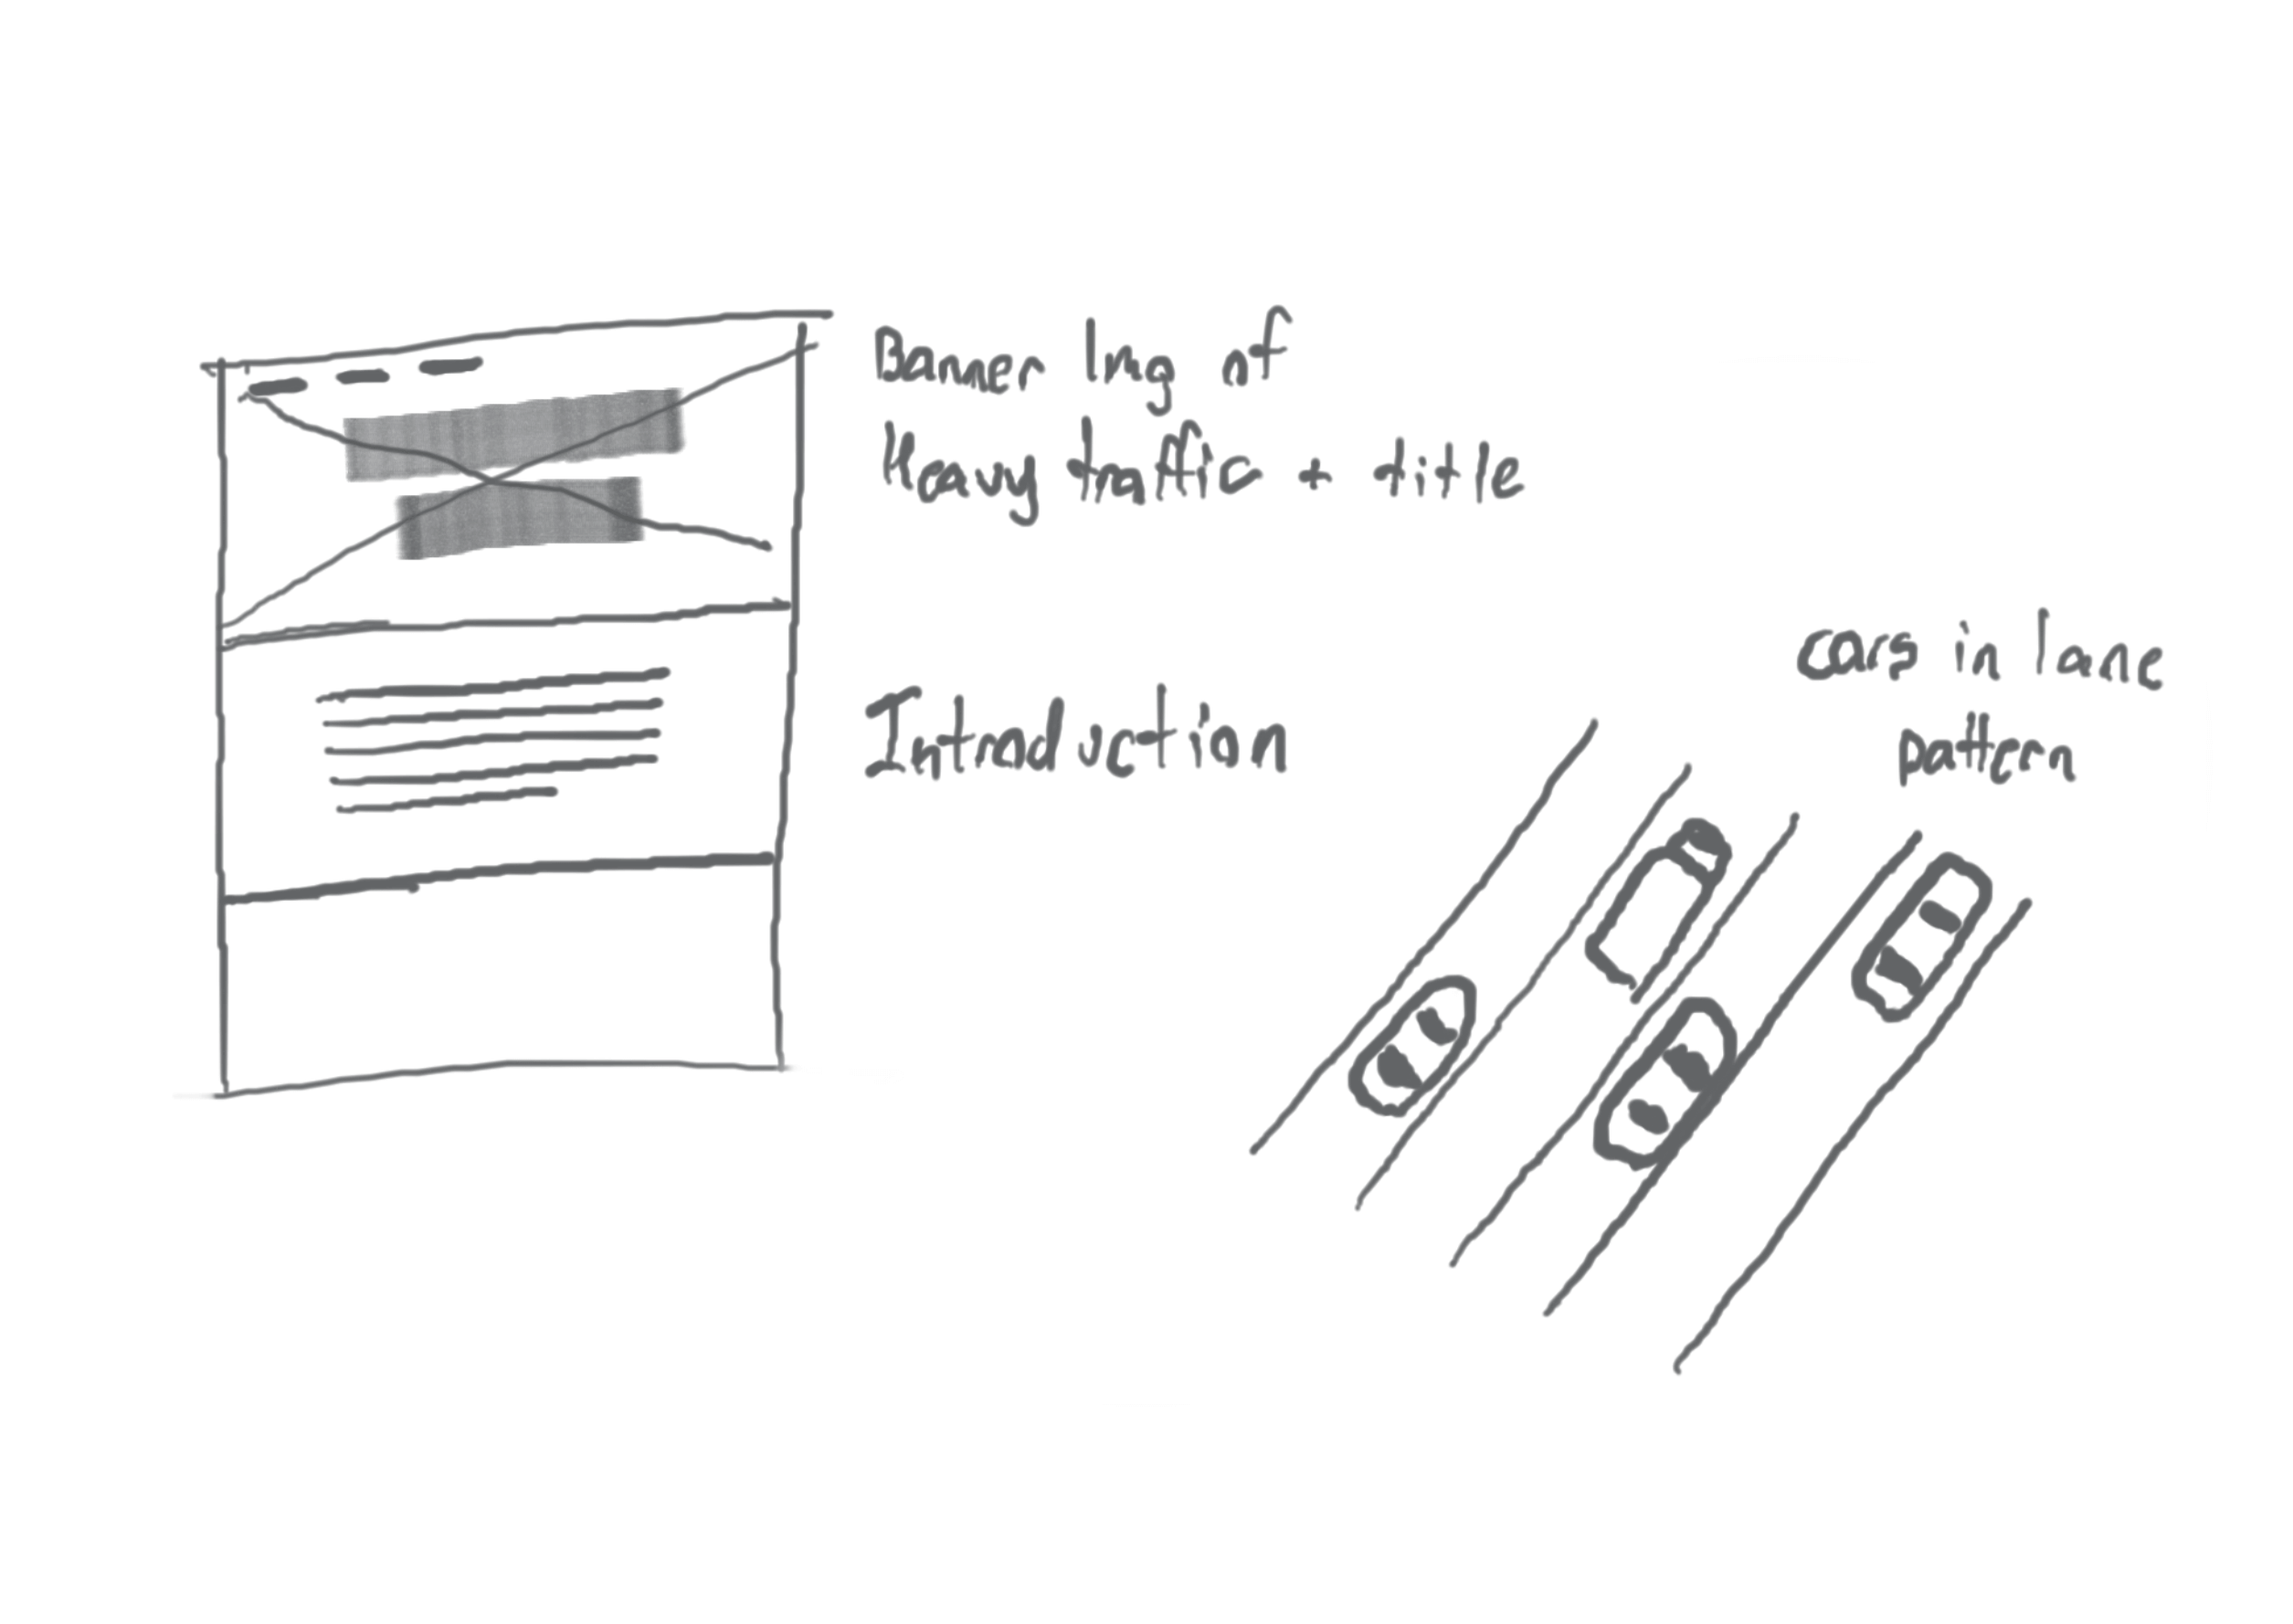 Banner Img of
Heavy traffic + title
Introduction
cars in lane
pattern